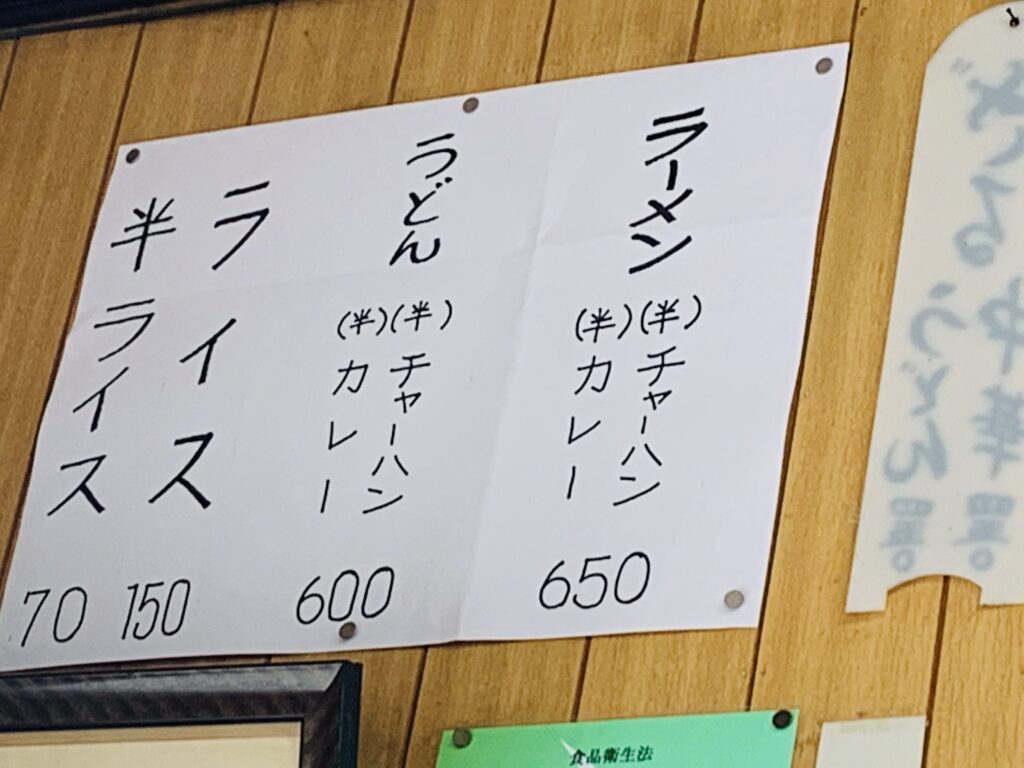 ラーメン
(半)チャーハン
(半)カレー
650
うどん
(半)チャーハン
(半)カレー
600
ライス
150
半ライス
70
食品衛生法